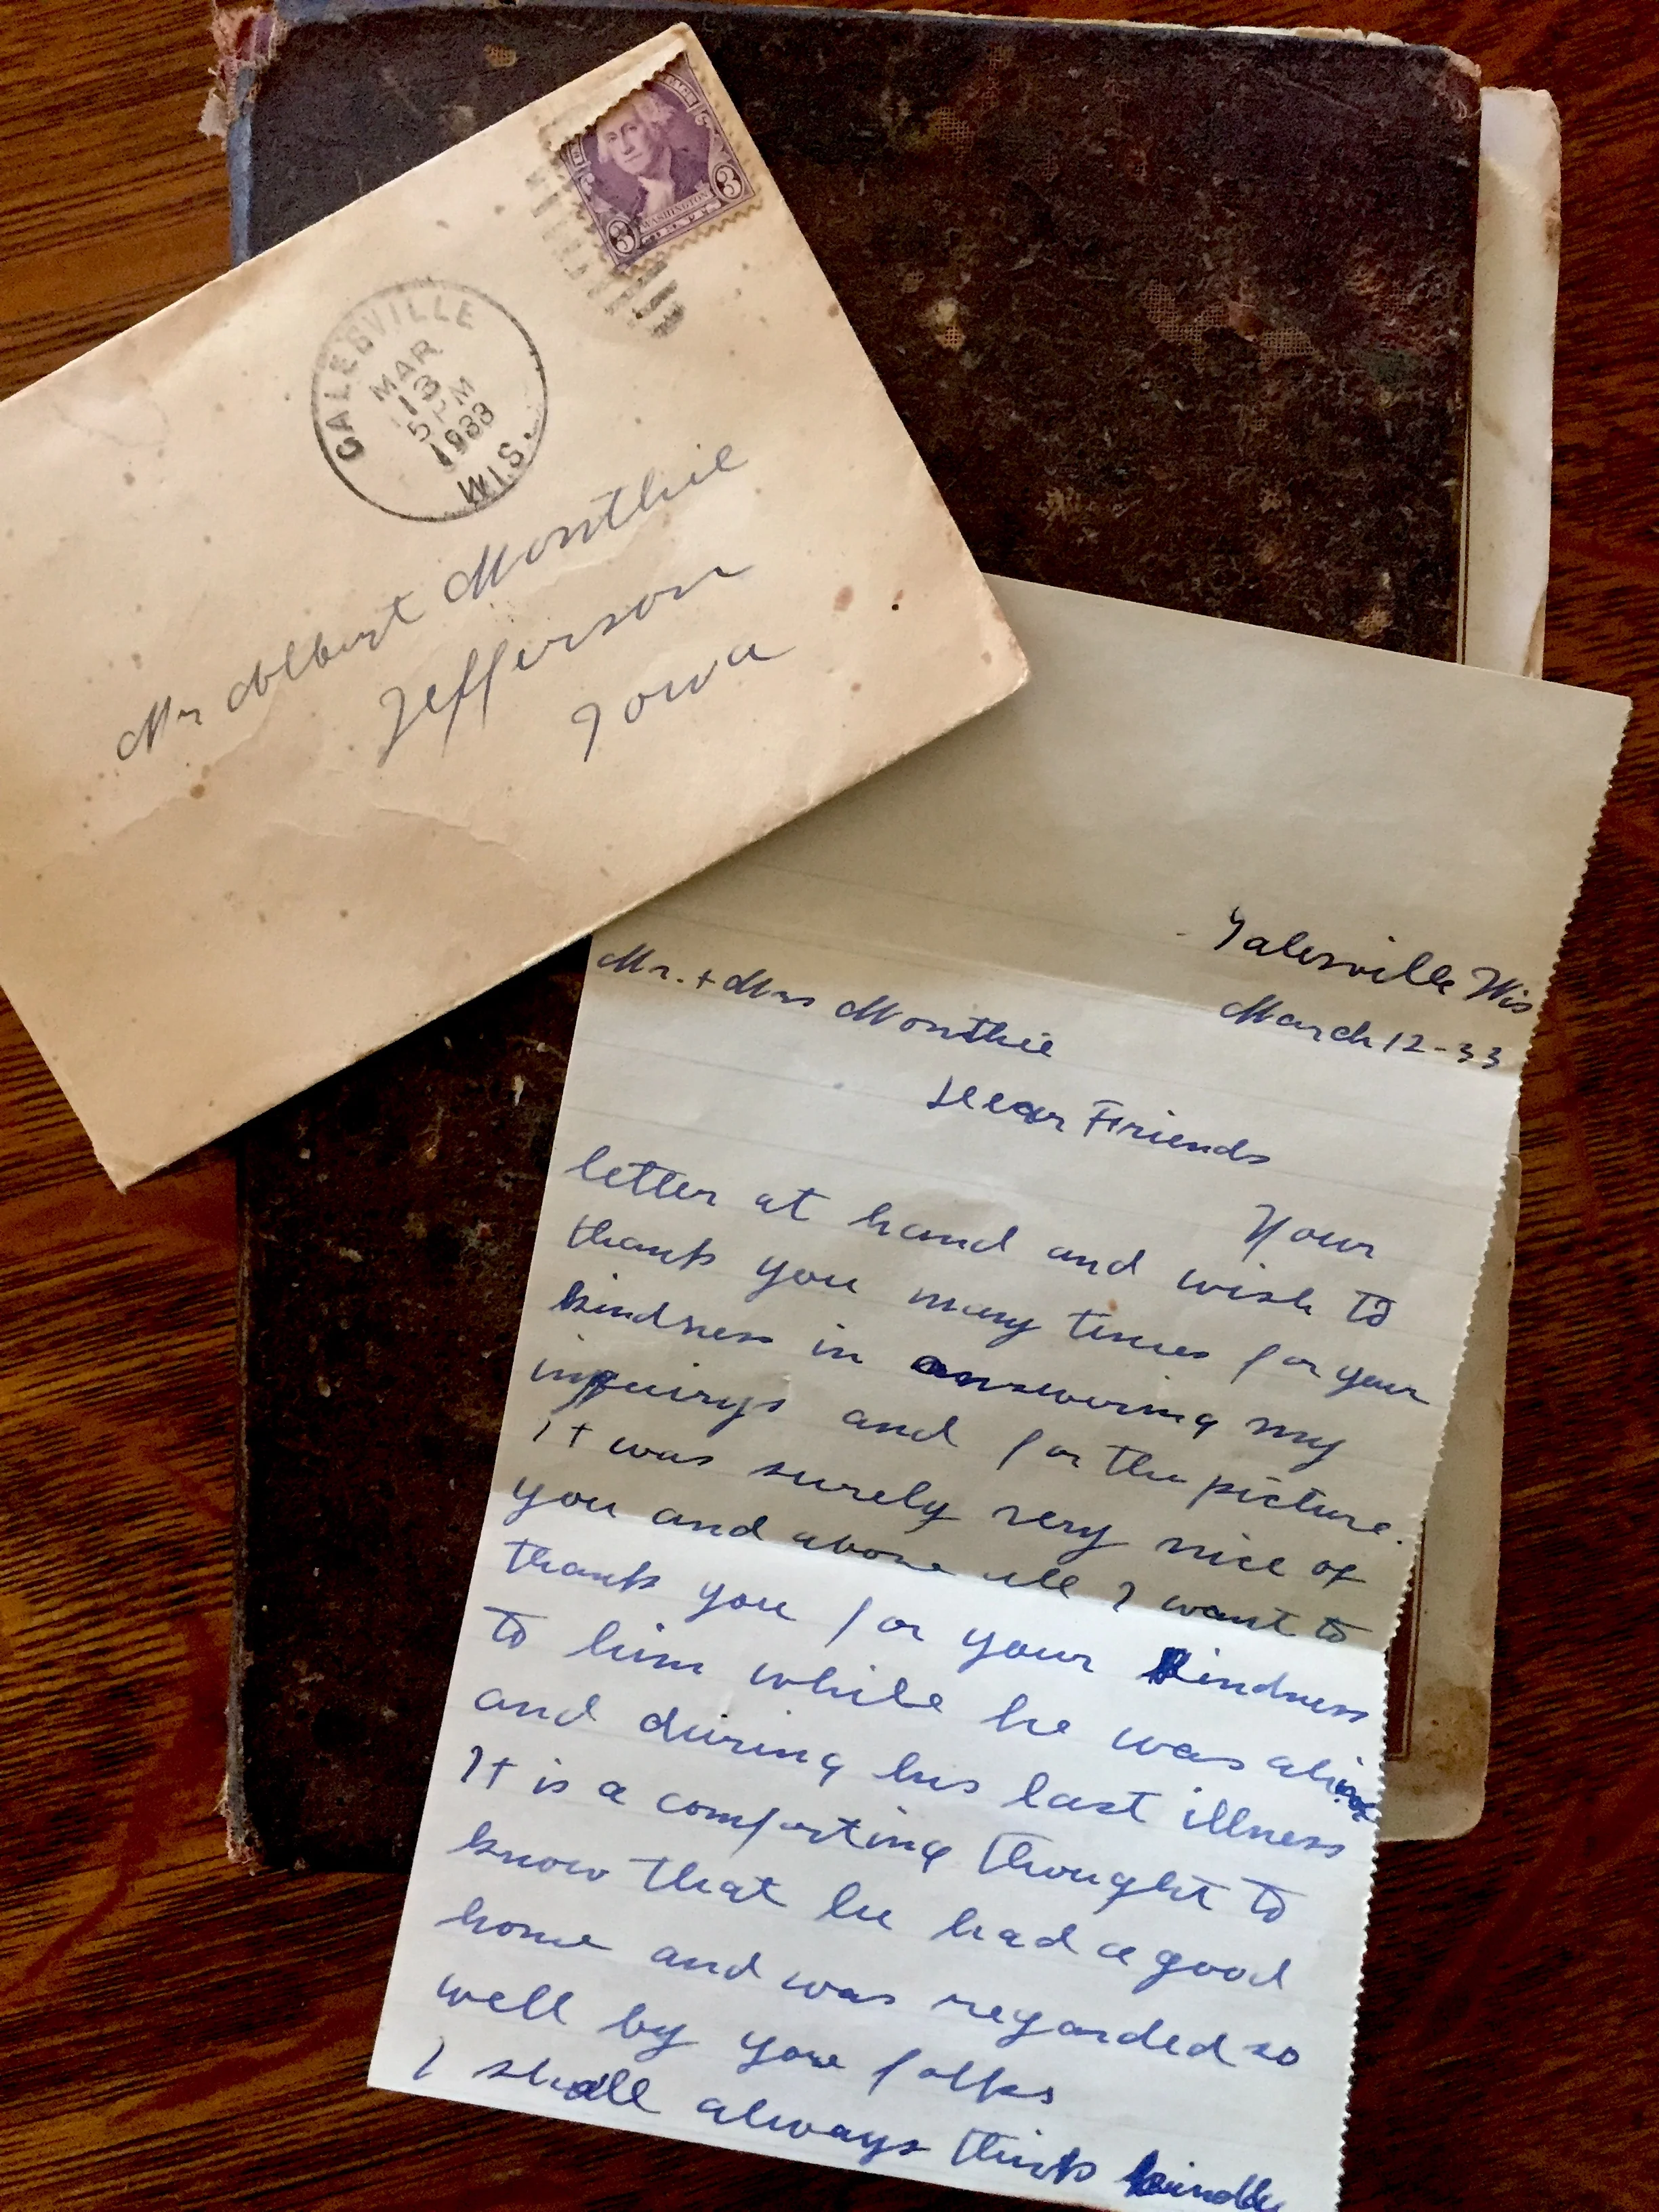 WASHINGTON
3
3
GALESVILLE
MAR
13
5 PM
1933
WIS.
Mr Albert Monthie
Jefferson
Iowa
Galesville Wis
March 12-33
Mr. + Mrs Monthie
Dear Friends
Your
letter at hand and wish to
thank you many times for your
kindness in answering my
inquirys and for the picture.
It was surely very nice of
you and above all I want to
thank you for your kindness
to him while he was alive
and during his last illness
It is a comforting thought to
know that he had a good
home and was regarded so
well by you folks
I shall always think kindly